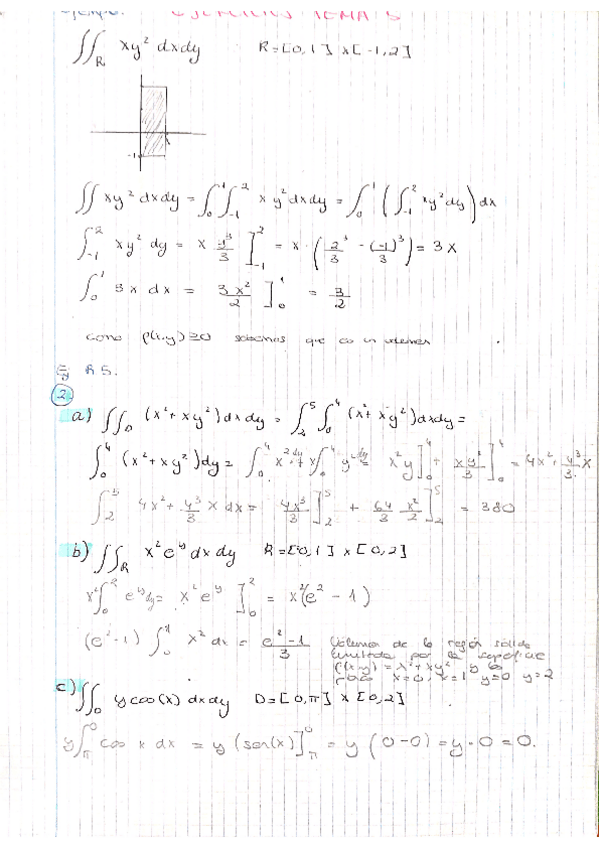 Ejemplo. EJERCICIOS TEMA 5
∬_R xy² dxdy R=[0,1] x [-1,2]
-1
∬ xy² dxdy = ∫₀¹ ∫₋₁² xy² dxdy = ∫₀¹ (∫₋₁² xy² dy) dx
∫₋₁² xy² dy = x y³/3 ]₋₁² = x · (2³/3 - (-1)³/3) = 3x
∫₀¹ 3x dx = 3x²/2 ]₀¹ = 3/2
como f(x,y) ≥ 0 sabemos que es un volumen
Ej R5.
2.
a) ∬_D (x² + xy²) dxdy = ∫₂⁵ ∫₀⁴ (x² + xy²) dxdy =
∫₀⁴ (x² + xy²) dy = ∫₀⁴ x² dy + x ∫₀⁴ y² dy = x²y ]₀⁴ + xy³/3 ]₀⁴ = 4x² + 4³/3 x
∫₂⁵ 4x² + 4³/3 x dx = 4x³/3 ]₂⁵ + 64/3 x²/2 ]₂⁵ = 380
b) ∬_R x² e^y dxdy R=[0,1] x [0,2]
x² ∫₀² e^y dy = x² e^y ]₀² = x² (e² - 1)
(e² - 1) ∫₀¹ x² dx = e² - 1 / 3 Volumen de la región sólida
limitada por la superficie
f(x,y) = x² + xy² y la
x=0, x=1 y=0 y=2
c) ∬_D y cos(x) dxdy D=[0,π] x [0,2]
y ∫_π^0 cos x dx = y (sen(x) ]_π^0 = y (0-0) = y · 0 = 0.